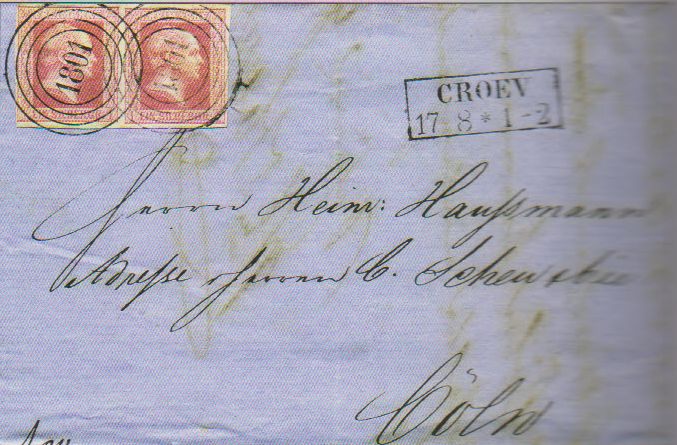 1801 1801
CROEV
17 8 * 1-2
Herrn Heinr: Haußmann
Adresse Herren C.
Cöln